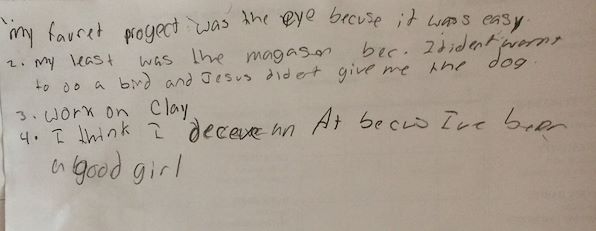 my favret progect was the eye becuse it wass easy.
2. my least was the magason bec. I dident wannt
to do a bird and Jesus dident give me the dog.
3. work on Clay
4. I think I deceve an At becus Ive been
a good girl